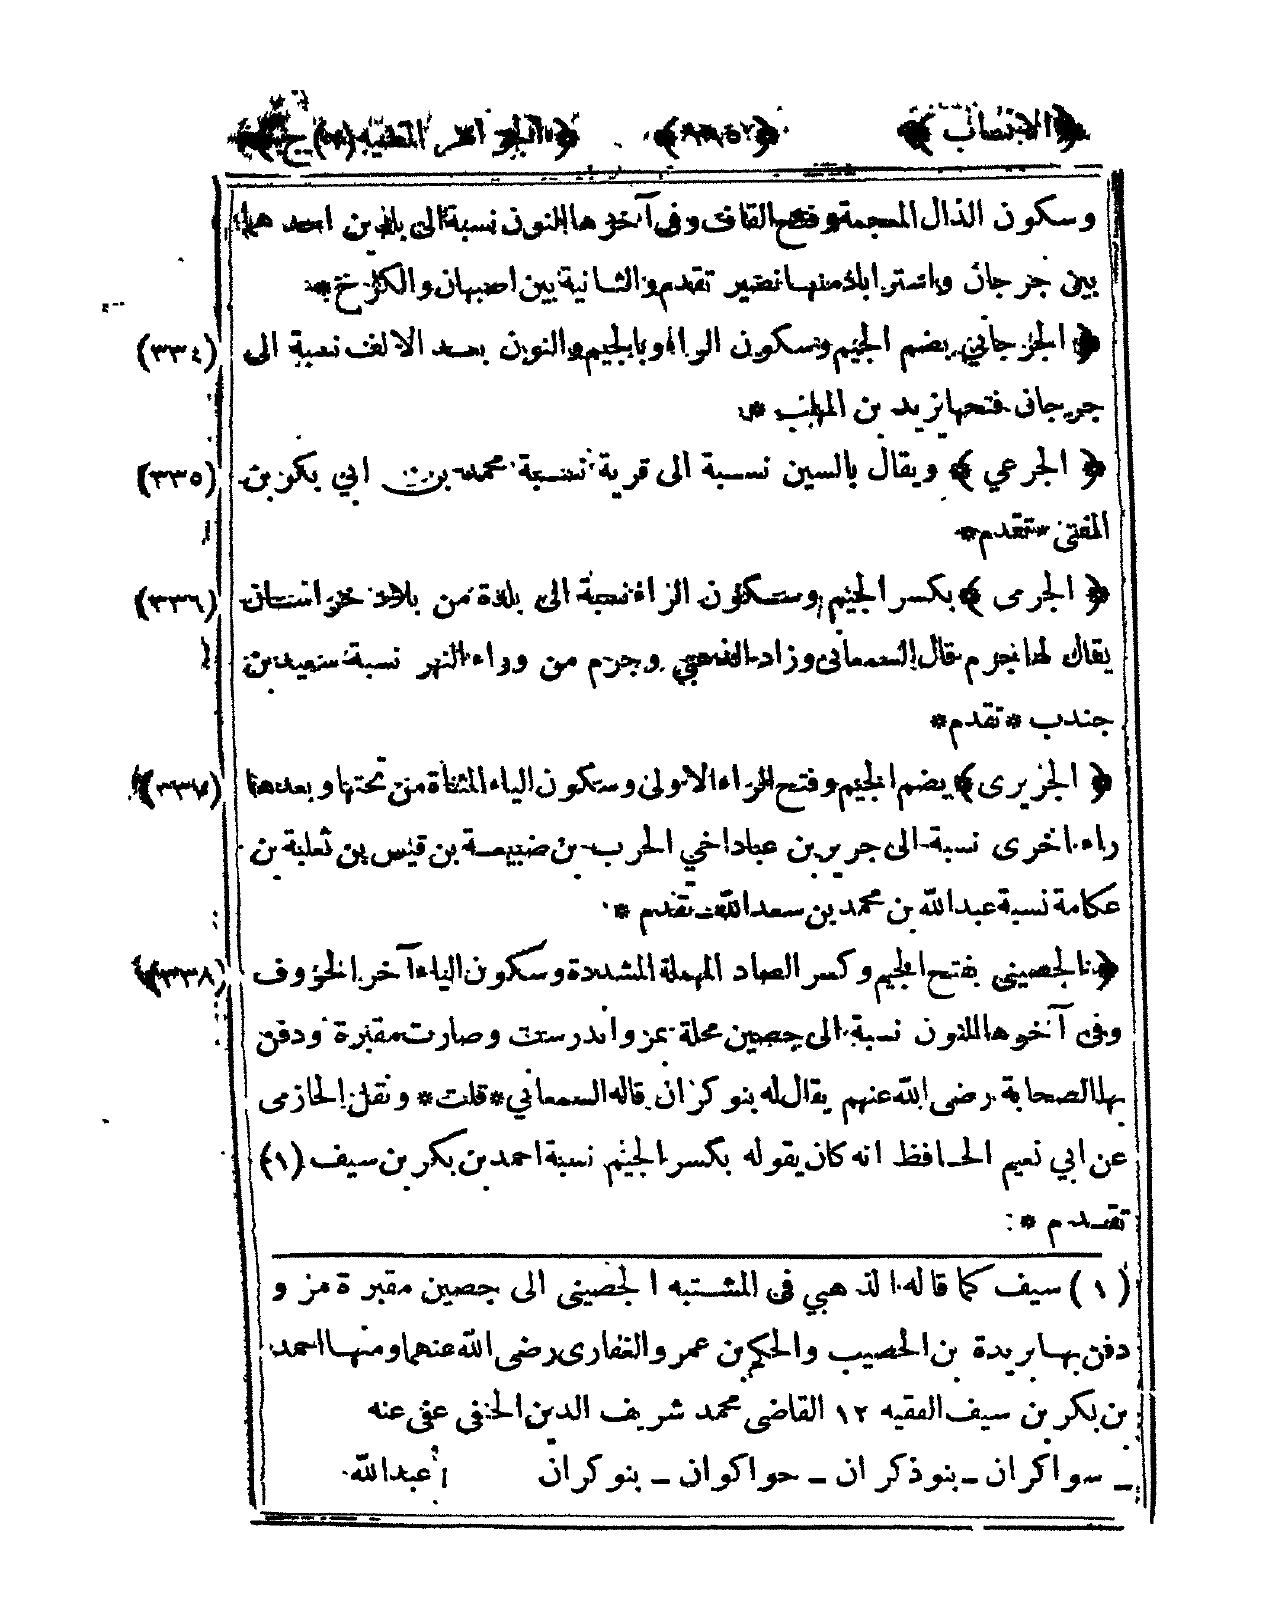 ﴿الانساب﴾ ﴿الجواهر المضية (٢) ج﴾
وسكون الذال المعجمة وفتح القاف وفى آخرها النون نسبة الى باذبن احد هما
بين جرجان واستراباد منها نصير تقدم والثانية بين اصبهان والكرخ *
﴿الجرجاني﴾ بضم الجيم وسكون الراء وبالجيم والنون بعد الالف نسبة الى (٣٣٤)
جرجان فتحها يزيد بن المهلب *
﴿الجرعي﴾ ويقال بالسين نسبة الى قرية نسبة محمد بن ابي بكر بن (٣٣٥)
المفتى * تقدم *
﴿الجرمى﴾ بكسر الجيم وسكون الراء نسبة الى بلدة من بلاد خراسان (٣٣٦)
يقال لها جرم قال السمعانى وزاد الذهبي وجرم من وراء النهر نسبة سعيد بن
جندب * تقدم *
﴿الجريرى﴾ بضم الجيم وفتح الراء الاولى وسكون الياء المثناة من تحتها وبعدها (٣٣٧)
راء اخرى نسبة الى جرير بن عباد اخي الحرب بن ضبيعة بن قيس بن ثعلبة بن
عكامة نسبة عبد الله بن محمد بن سعد الله تقدم *
﴿الجصينى﴾ بفتح الجيم وكسر الصاد المهملة المشددة وسكون الياء آخر الحروف (٣٣٨)
وفى آخرها النون نسبة الى جصين محلة بمرو اندرست وصارت مقبرة ودفن
بها الصحابة رضى الله عنهم يقال له بنوكران قاله السمعاني * قلت * ونقل الحازمى
عن ابي نعيم الحافظ انه كان يقوله بكسر الجيم نسبة احمد بن بكر بن سيف (١)
تقدم *
(١) سيف كما قاله الذهبي فى المشتبه الجصينى الى جصين مقبرة مرو
دفن بها بريدة بن الحصيب والحكم بن عمرو الغفارى رضى الله عنهما ومنها احمد
بن بكر بن سيف الفقيه ١٢ القاضى محمد شريف الدين الحنفى عفى عنه
ـ سواكران ـ بنوذكران ـ حواكوان ـ بنوكران عبدالله